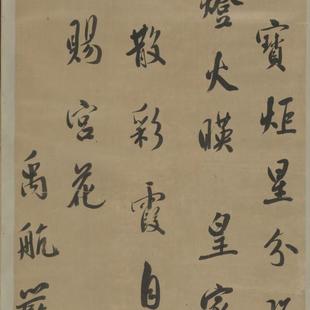 寶炬星分
燈火暎皇家
散彩霞自
賜宮花
禹航嚴